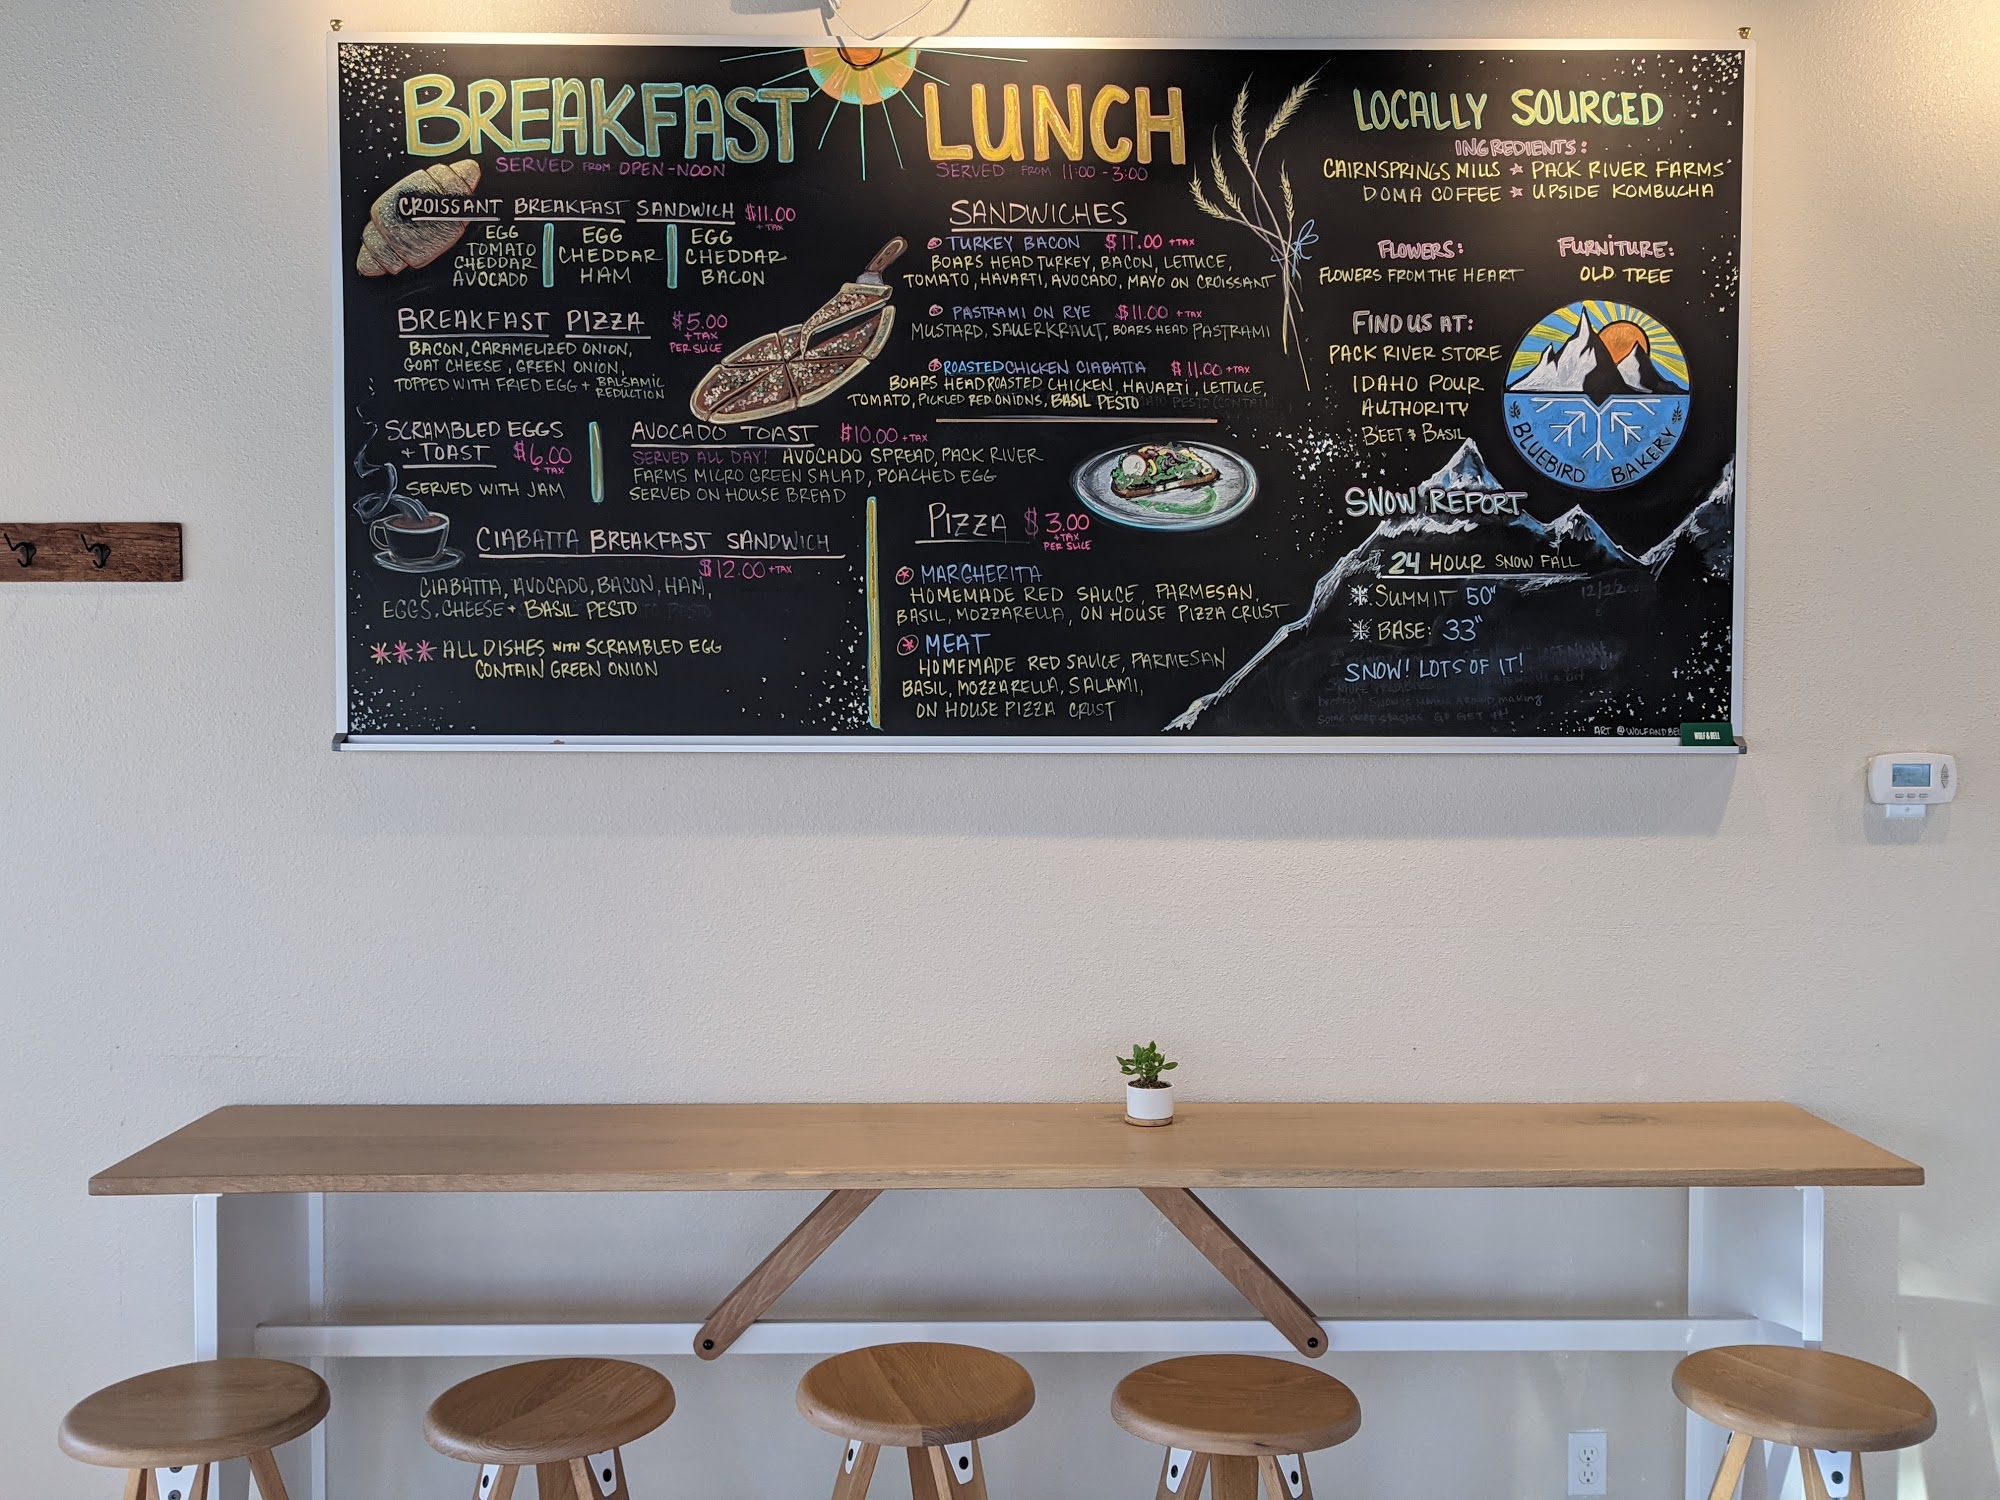 BREAKFAST
SERVED FROM OPEN-NOON
CROISSANT BREAKFAST SANDWICH $11.00
+ TAX
EGG
TOMATO
CHEDDAR
AVOCADO
EGG
CHEDDAR
HAM
EGG
CHEDDAR
BACON
BREAKFAST PIZZA $5.00
+ TAX
PER SLICE
BACON, CARAMELIZED ONION,
GOAT CHEESE, GREEN ONION,
TOPPED WITH FRIED EGG + BALSAMIC
REDUCTION
SCRAMBLED EGGS
+ TOAST $6.00
+ TAX
SERVED WITH JAM
AVOCADO TOAST $10.00 + TAX
SERVED ALL DAY! AVOCADO SPREAD, PACK RIVER
FARMS MICRO GREEN SALAD, POACHED EGG
SERVED ON HOUSE BREAD
CIABATTA BREAKFAST SANDWICH
$12.00 + TAX
CIABATTA, AVOCADO, BACON, HAM,
EGGS, CHEESE + BASIL PESTO
*** ALL DISHES WITH SCRAMBLED EGG
CONTAIN GREEN ONION
LUNCH
SERVED FROM 11:00 - 3:00
SANDWICHES
TURKEY BACON $11.00 + TAX
BOARS HEAD TURKEY, BACON, LETTUCE,
TOMATO, HAVARTI, AVOCADO, MAYO ON CROISSANT
PASTRAMI ON RYE $11.00 + TAX
MUSTARD, SAUERKRAUT, BOARS HEAD PASTRAMI
ROASTED CHICKEN CIABATTA $11.00 + TAX
BOARS HEAD ROASTED CHICKEN, HAVARTI, LETTUCE,
TOMATO, PICKLED RED ONIONS, BASIL PESTO
PIZZA $3.00
+ TAX
PER SLICE
MARGHERITA
HOMEMADE RED SAUCE, PARMESAN,
BASIL, MOZZARELLA, ON HOUSE PIZZA CRUST
MEAT
HOMEMADE RED SAUCE, PARMESAN
BASIL, MOZZARELLA, SALAMI,
ON HOUSE PIZZA CRUST
LOCALLY SOURCED
INGREDIENTS:
CAIRNSPRINGS MILLS ☆ PACK RIVER FARMS
DOMA COFFEE ☆ UPSIDE KOMBUCHA
FLOWERS:
FLOWERS FROM THE HEART
FURNITURE:
OLD TREE
FIND US AT:
PACK RIVER STORE
IDAHO POUR
AUTHORITY
BEET & BASIL
BLUEBIRD BAKERY
SNOW REPORT
24 HOUR SNOW FALL
SUMMIT 50"
BASE: 33"
SNOW! LOTS OF IT!
ART @WOLFANDBEL
WOLF & BELL